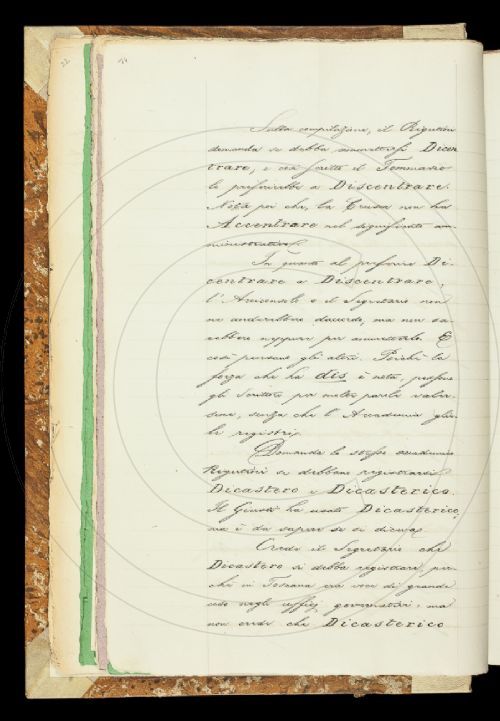 Sulla compilazione, il Rigutini
domanda se debba ammettersi Dicen
trare, e così scritto il Tommaseo
lo preferirebbe a Discentrare.
Nota poi che, la Crusca non ha
Accentrare nel significato am
ministrativo.
In quanto al preferire Di-
centrare a Discentrare,
l'Arciconsolo e il Segretario non
ne anderebbero d'accordo, ma non sa-
rebbero neppure per ammetterlo. E
così pensano gli altri. Perchè la
forza che ha dis è nota, possono
gli Scrittori per molte parole valer-
sene, senza che l'Accademia glie-
le registri.
Domanda lo stesso accademico
Rigutini se debbano registrarsi
Dicastero e Dicasterico.
Il Giusti ha usato Dicasterico,
ma è da sapere se si diceva
Crede il Segretario che
Dicastero si debba registrare, per-
chè in Toscana era voce di grande
uso negli uffizj governativi: ma
non crede che Dicasterico